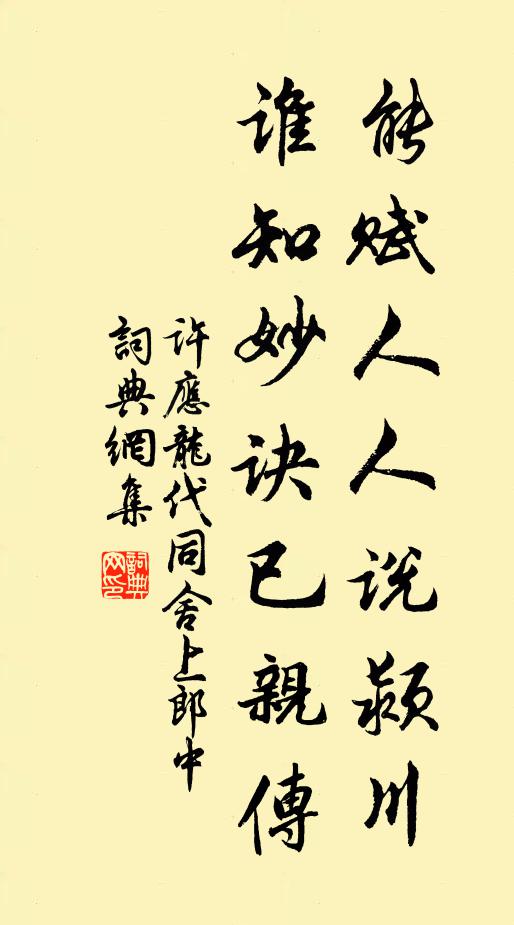 能赋人人说颍川
谁知妙诀已親傳
许應龍代同舍上郎中
詞典網集
詞典网印